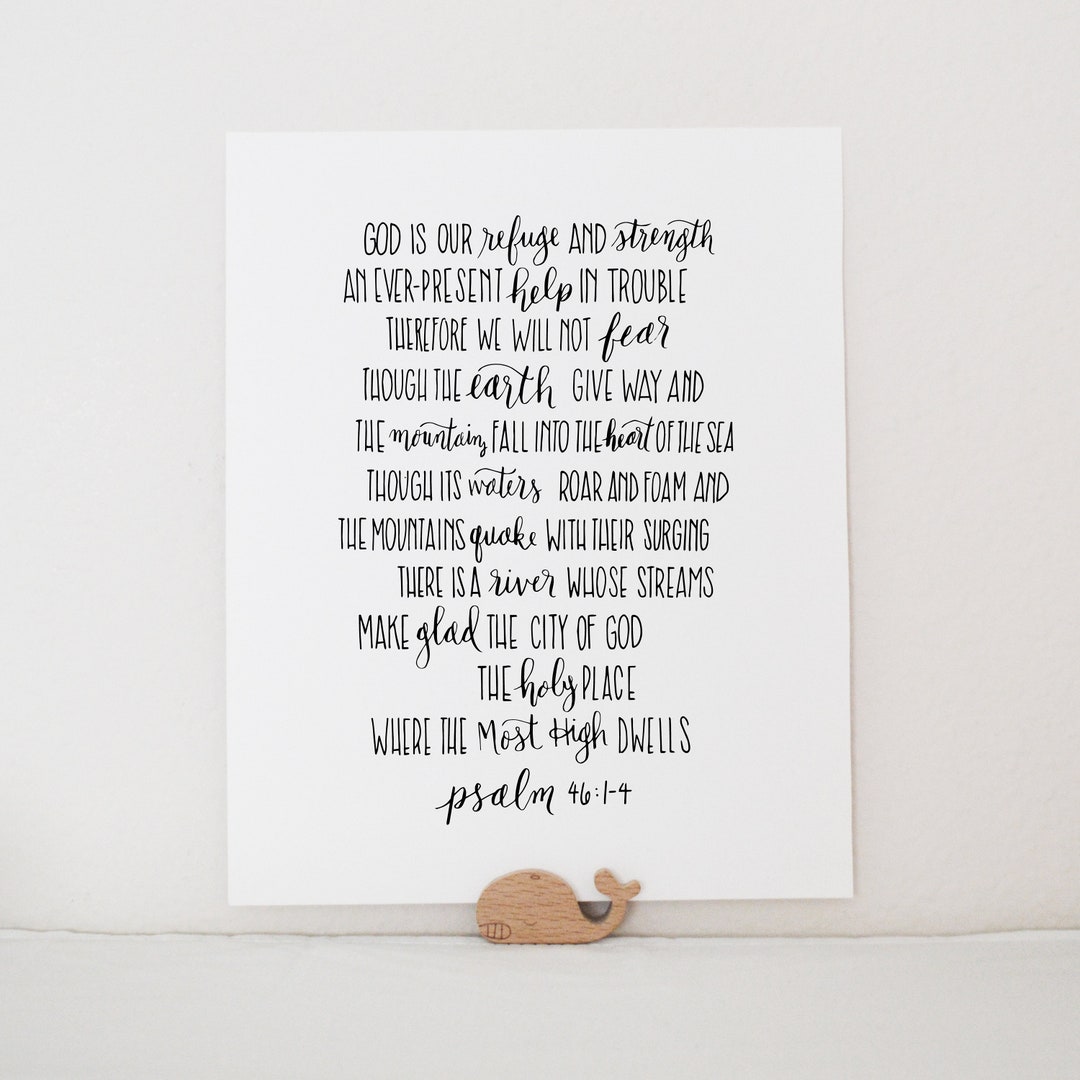 GOD IS OUR refuge AND strength
AN EVER-PRESENT help IN TROUBLE
THEREFORE WE WILL NOT fear
THOUGH THE earth GIVE WAY AND
THE mountains FALL INTO THE heart OF THE SEA
THOUGH ITS waters ROAR AND FOAM AND
THE MOUNTAINS quake WITH THEIR SURGING
THERE IS A river WHOSE STREAMS
MAKE glad THE CITY OF GOD
THE holy PLACE
WHERE THE Most High DWELLS
psalm 46:1-4